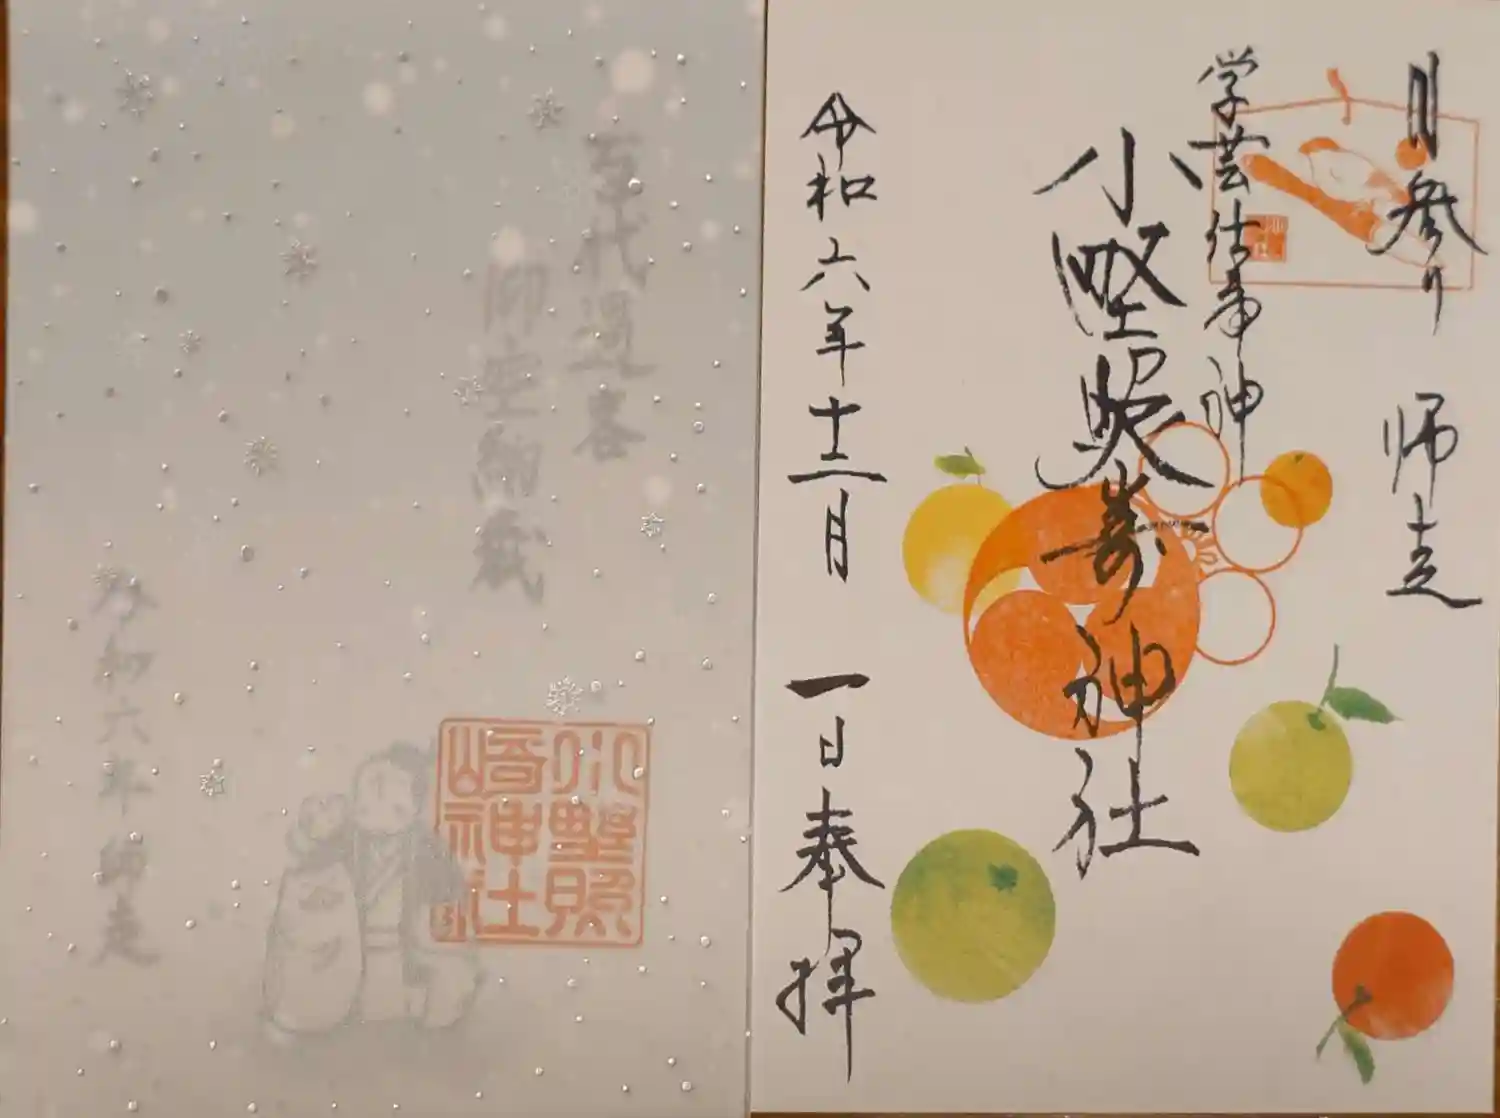 月参り 師走
学芸仕事神
小野照崎神社
令和六年十二月 一日奉拝
百代過客
小野照
崎神社
令和六年師走